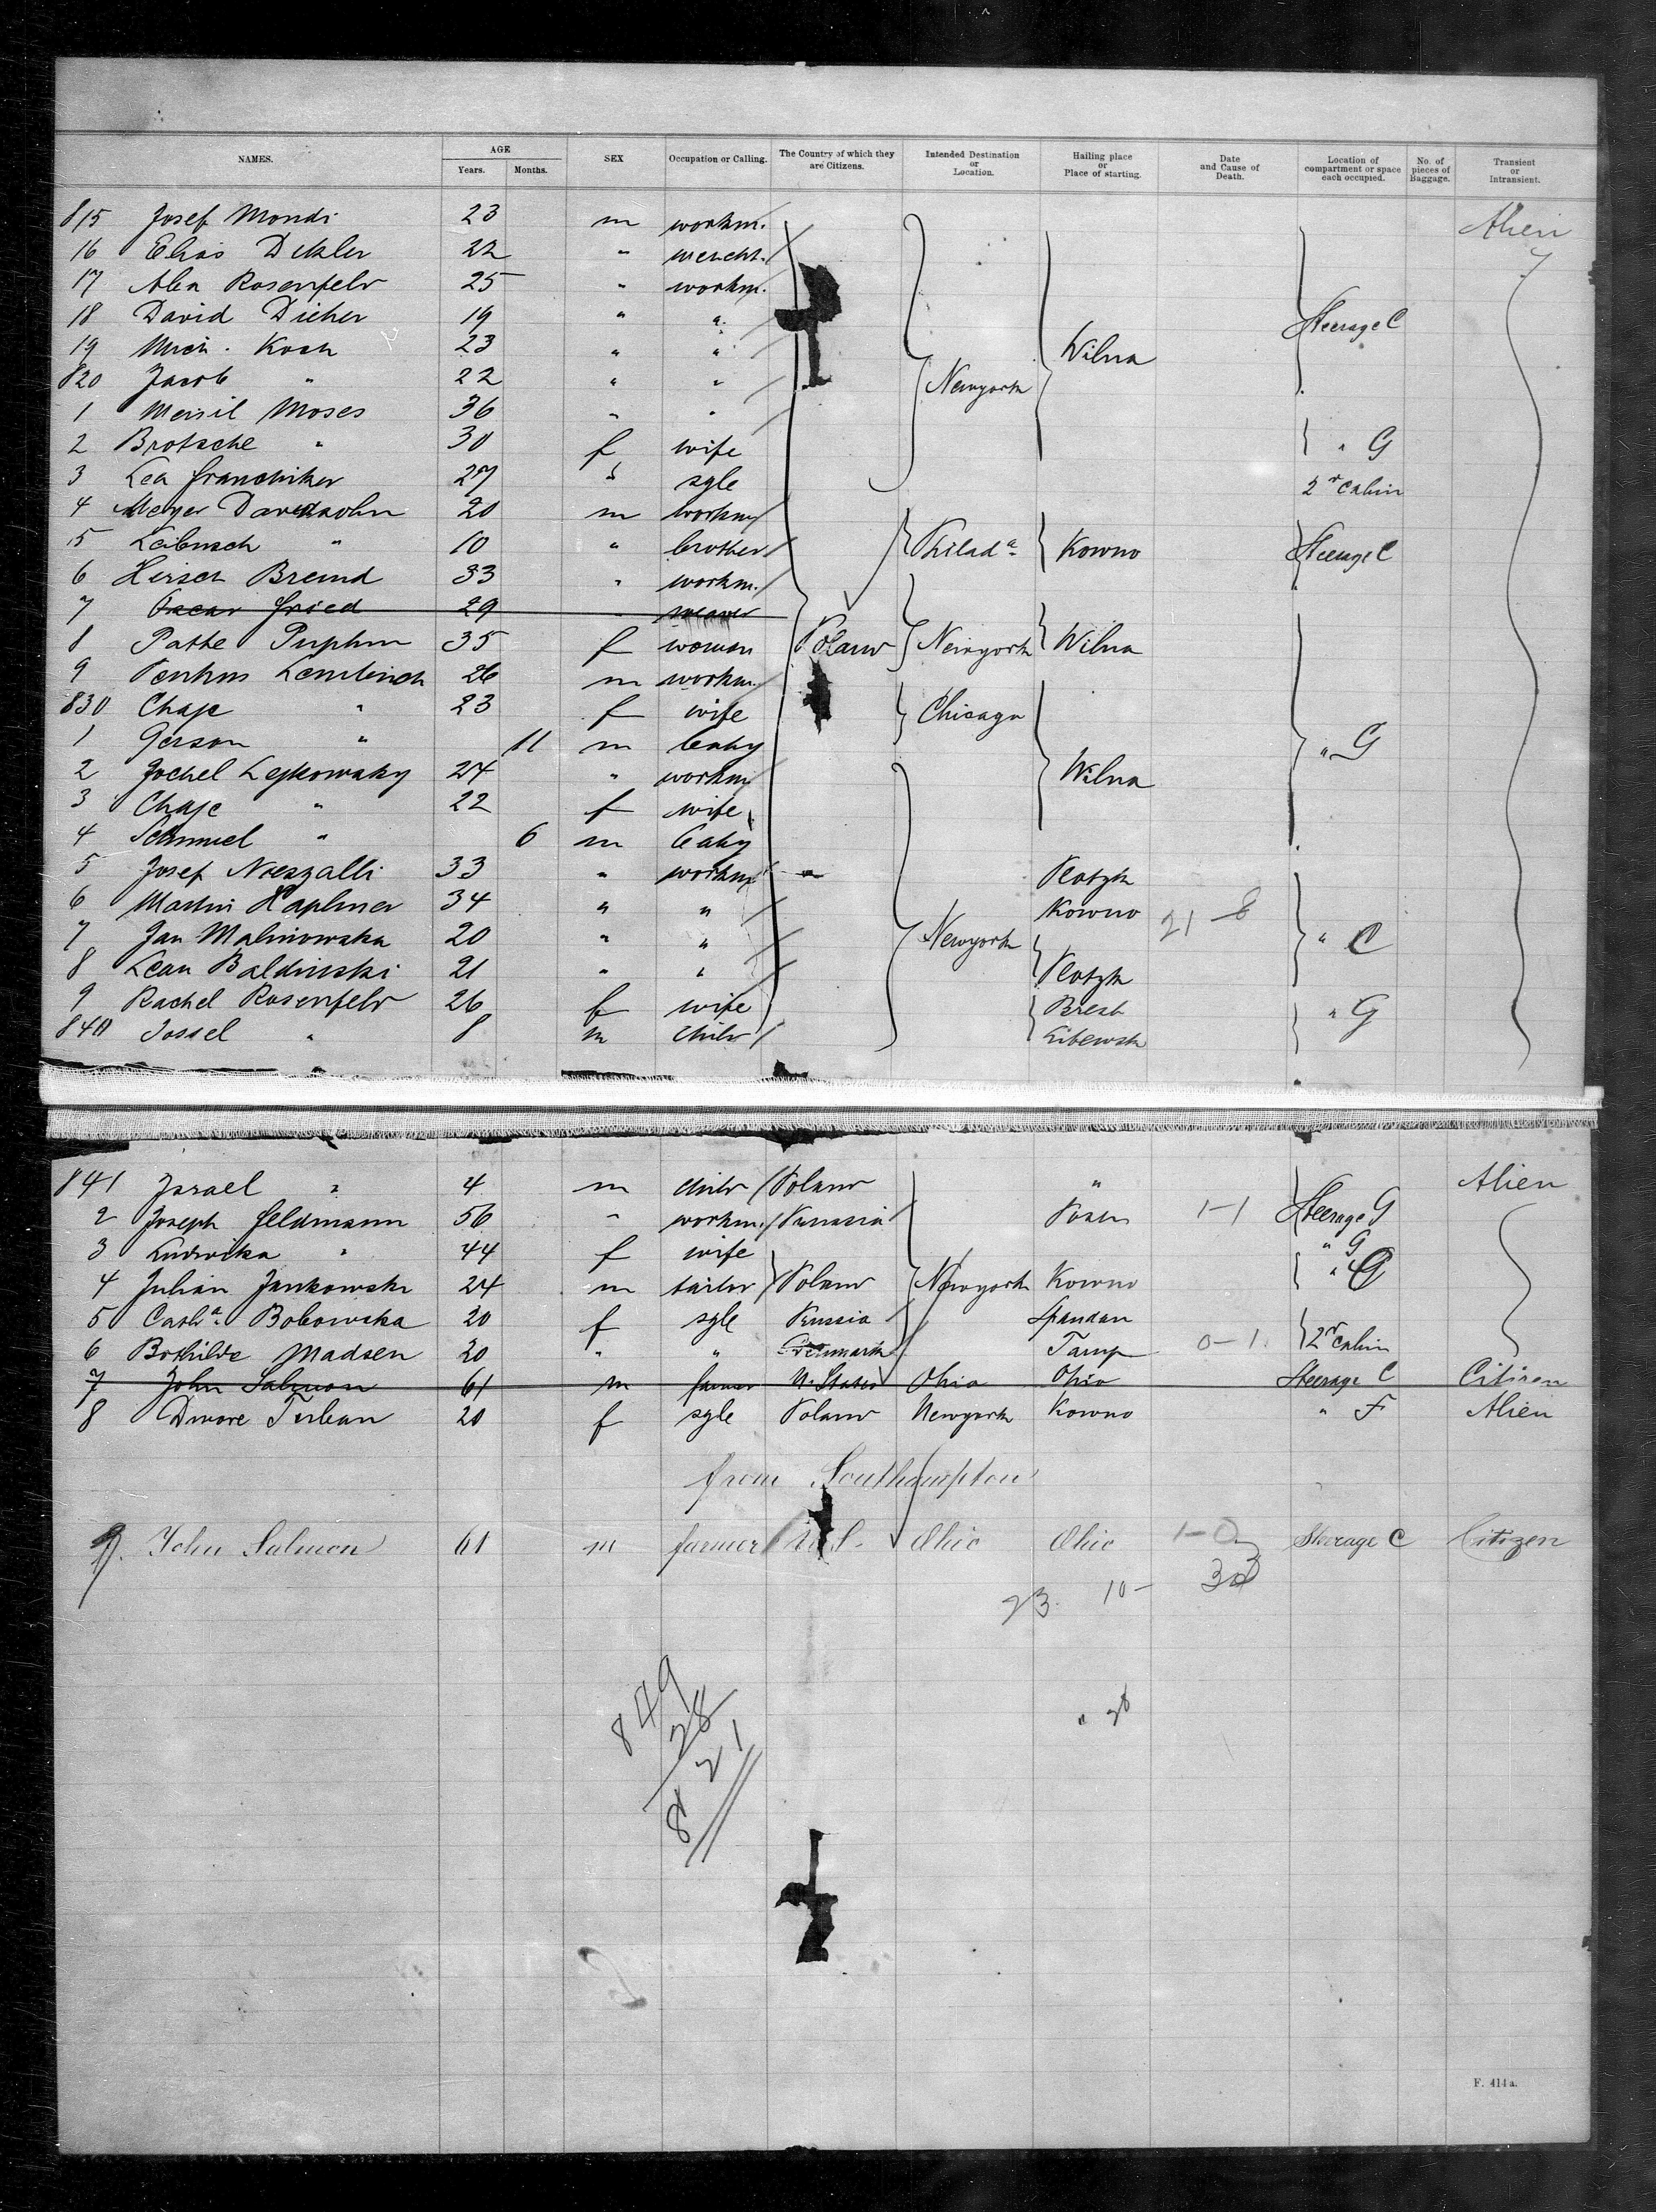 NAMES. AGE Years. Months. SEX Occupation or Calling. The Country of which they are Citizens. Intended Destination or Location. Hailing place or Place of starting. Date and Cause of Death. Location of compartment or space each occupied. No. of pieces of Baggage. Transient or Intransient.
815 Josef Mondi 23 m workm. Alien
16 Elias Dekler 22 " mercht.
17 Alex Rosenfeld 25 " workm.
18 David Dicher 19 " " Steerage C
19 Mich. Koch 23 " " Wilna
820 Jacob " 22 " " Newyork
1 Meisil Moses 36 " "
2 Brotsche " 30 f wife " G
3 Lea 27 " sgle 2d Cabin
4 Meyer Davidsohn 20 m workm
5 Leibusch " 10 " brother Philada Kowno Steerage C
6 Hirsch Bremd 33 " workm.
7 Oscar Fried 29 " weaver
8 Pathe Puphm 35 f woman Poland Newyork Wilna
9 26 m workm.
830 Chaje " 23 f wife Chicago
1 Gerson " 11 m baby " G
2 Jochel Lejkowsky 24 " workm Wilna
3 Chaje " 22 f wife
4 Schmuel " 6 m baby
5 Josef 33 " workm " Plotzk
6 Martin Kaplmer 34 " " Kowno 21 - 6
7 Jan Malinowska 20 " " Newyork " C
8 Lean Baldinski 21 " " Plotzk
9 Rachel Rosenfeld 26 f wife Brest " G
840 Jossel " 8 m child Litewsk
841 Israel " 4 m child Poland " Alien
2 Joseph Feldmann 56 " workm. Prussia Posen 1-1 Steerage G
3 Ludwika " 44 f wife " G
4 Julian Jankowski 24 m tailor Poland Newyork Kowno " C
5 Casha Bobowska 20 f sgle Russia Spandau
6 Bothilde Madsen 20 " " Denmark Tarup 0-1. 2d Cabin
7 John Salmon 61 m farmer U. States Ohio Ohio Steerage C Citizen
8 Dwore Turban 20 f sgle Poland Newyork Kowno " F Alien
from Southampton
9. John Salmon 61 m farmer U.S. Ohio Ohio 1-0 Steerage C Citizen
23. 10- 30
" 28
849
28
821
F. 414 a.